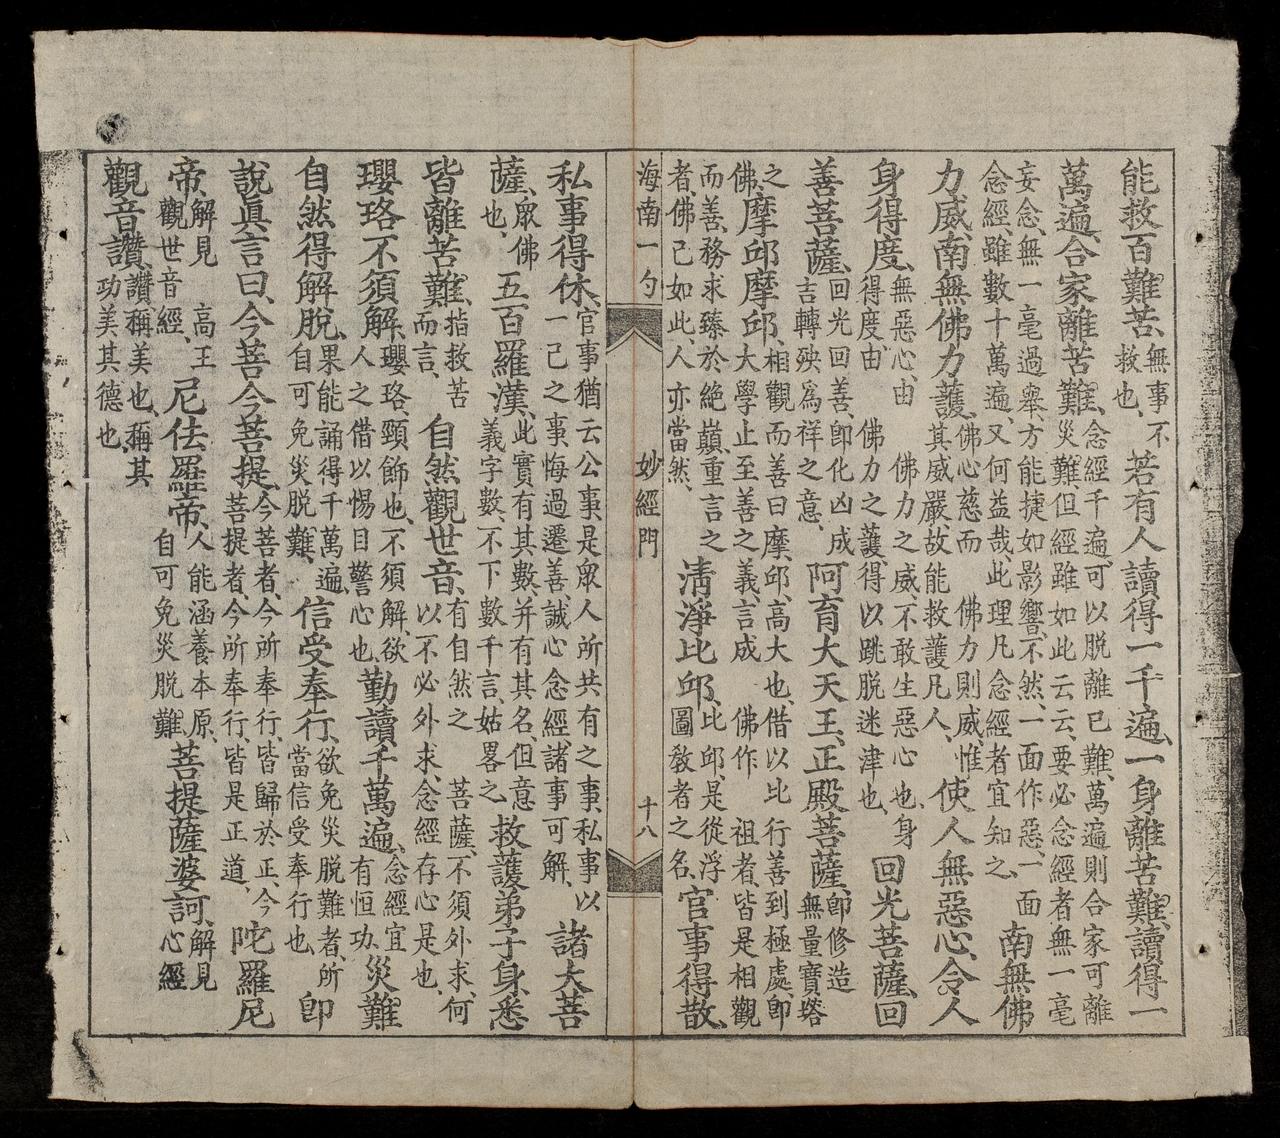 能救百難苦、無事不救也、若有人讀得一千遍、一身離苦難、讀得一
萬遍、合家離苦難、念經千遍、可以脱離已難、萬遍則合家可離災難、但經雖如此云云、要必念經者無一毫
妄念、無一毫過舉、方能捷如影響、不然、一面作惡、一面念經、雖數十萬遍、又何益哉、此理凡念經者宜知之、南無佛
力威、南無佛力護、佛心慈而其威嚴、故能救護凡人、佛力則威、惟使人無惡心、令人
身得度、無惡心、由得度由佛力之護、得以跳脫迷津也、佛力之威、不敢生惡心也、身回光菩薩、回
善菩薩、回光回善、卽化凶成吉、轉殃爲祥之意、阿育大天王、正殿菩薩、卽修造無量寶塔
之佛、摩邱摩邱、相觀而善曰摩、邱、高大也、借以比行善到極處、卽大學止至善之義、言成佛作祖者、皆是相觀
而善、務求臻於絶巔、重言之者、佛己如此、人亦當然、清淨比邱、比邱、是從浮圖敎者之名、官事得散、
海南一勺 妙經門 十八
私事得休、官事猶云公事、是衆人所共有之事、私事以一己之事、悔過遷善、誠心念經、諸事可解、諸大菩
薩、衆佛也、五百羅漢、此實有其數、并有其名、但意義字數、不下數千言、姑畧之、救護弟子身、悉
皆離苦難、指救苦而言、自然觀世音、有自然之菩薩、不須外求、何以不必外求、念經存心是也、
瓔珞不須解、瓔珞、頸飾也、不須解、欲人之借以惕目警心也、勤讀千萬遍、念經宜有恒功、災難
自然得解脫、果能誦得千萬遍、自可免災脱難、信受奉行、欲免災脱難者、所當信受奉行也、卽
說眞言曰、今菩今菩提、今菩者、今所奉行、皆歸於正、今菩提者、今所奉行、皆是正道、陀羅尼
帝、解見高王觀世音經、尼佉羅帝、人能涵養本原、自可免災脱難、菩提薩婆訶、解見心經
觀音讚、讚稱美也、稱其功美其德也、